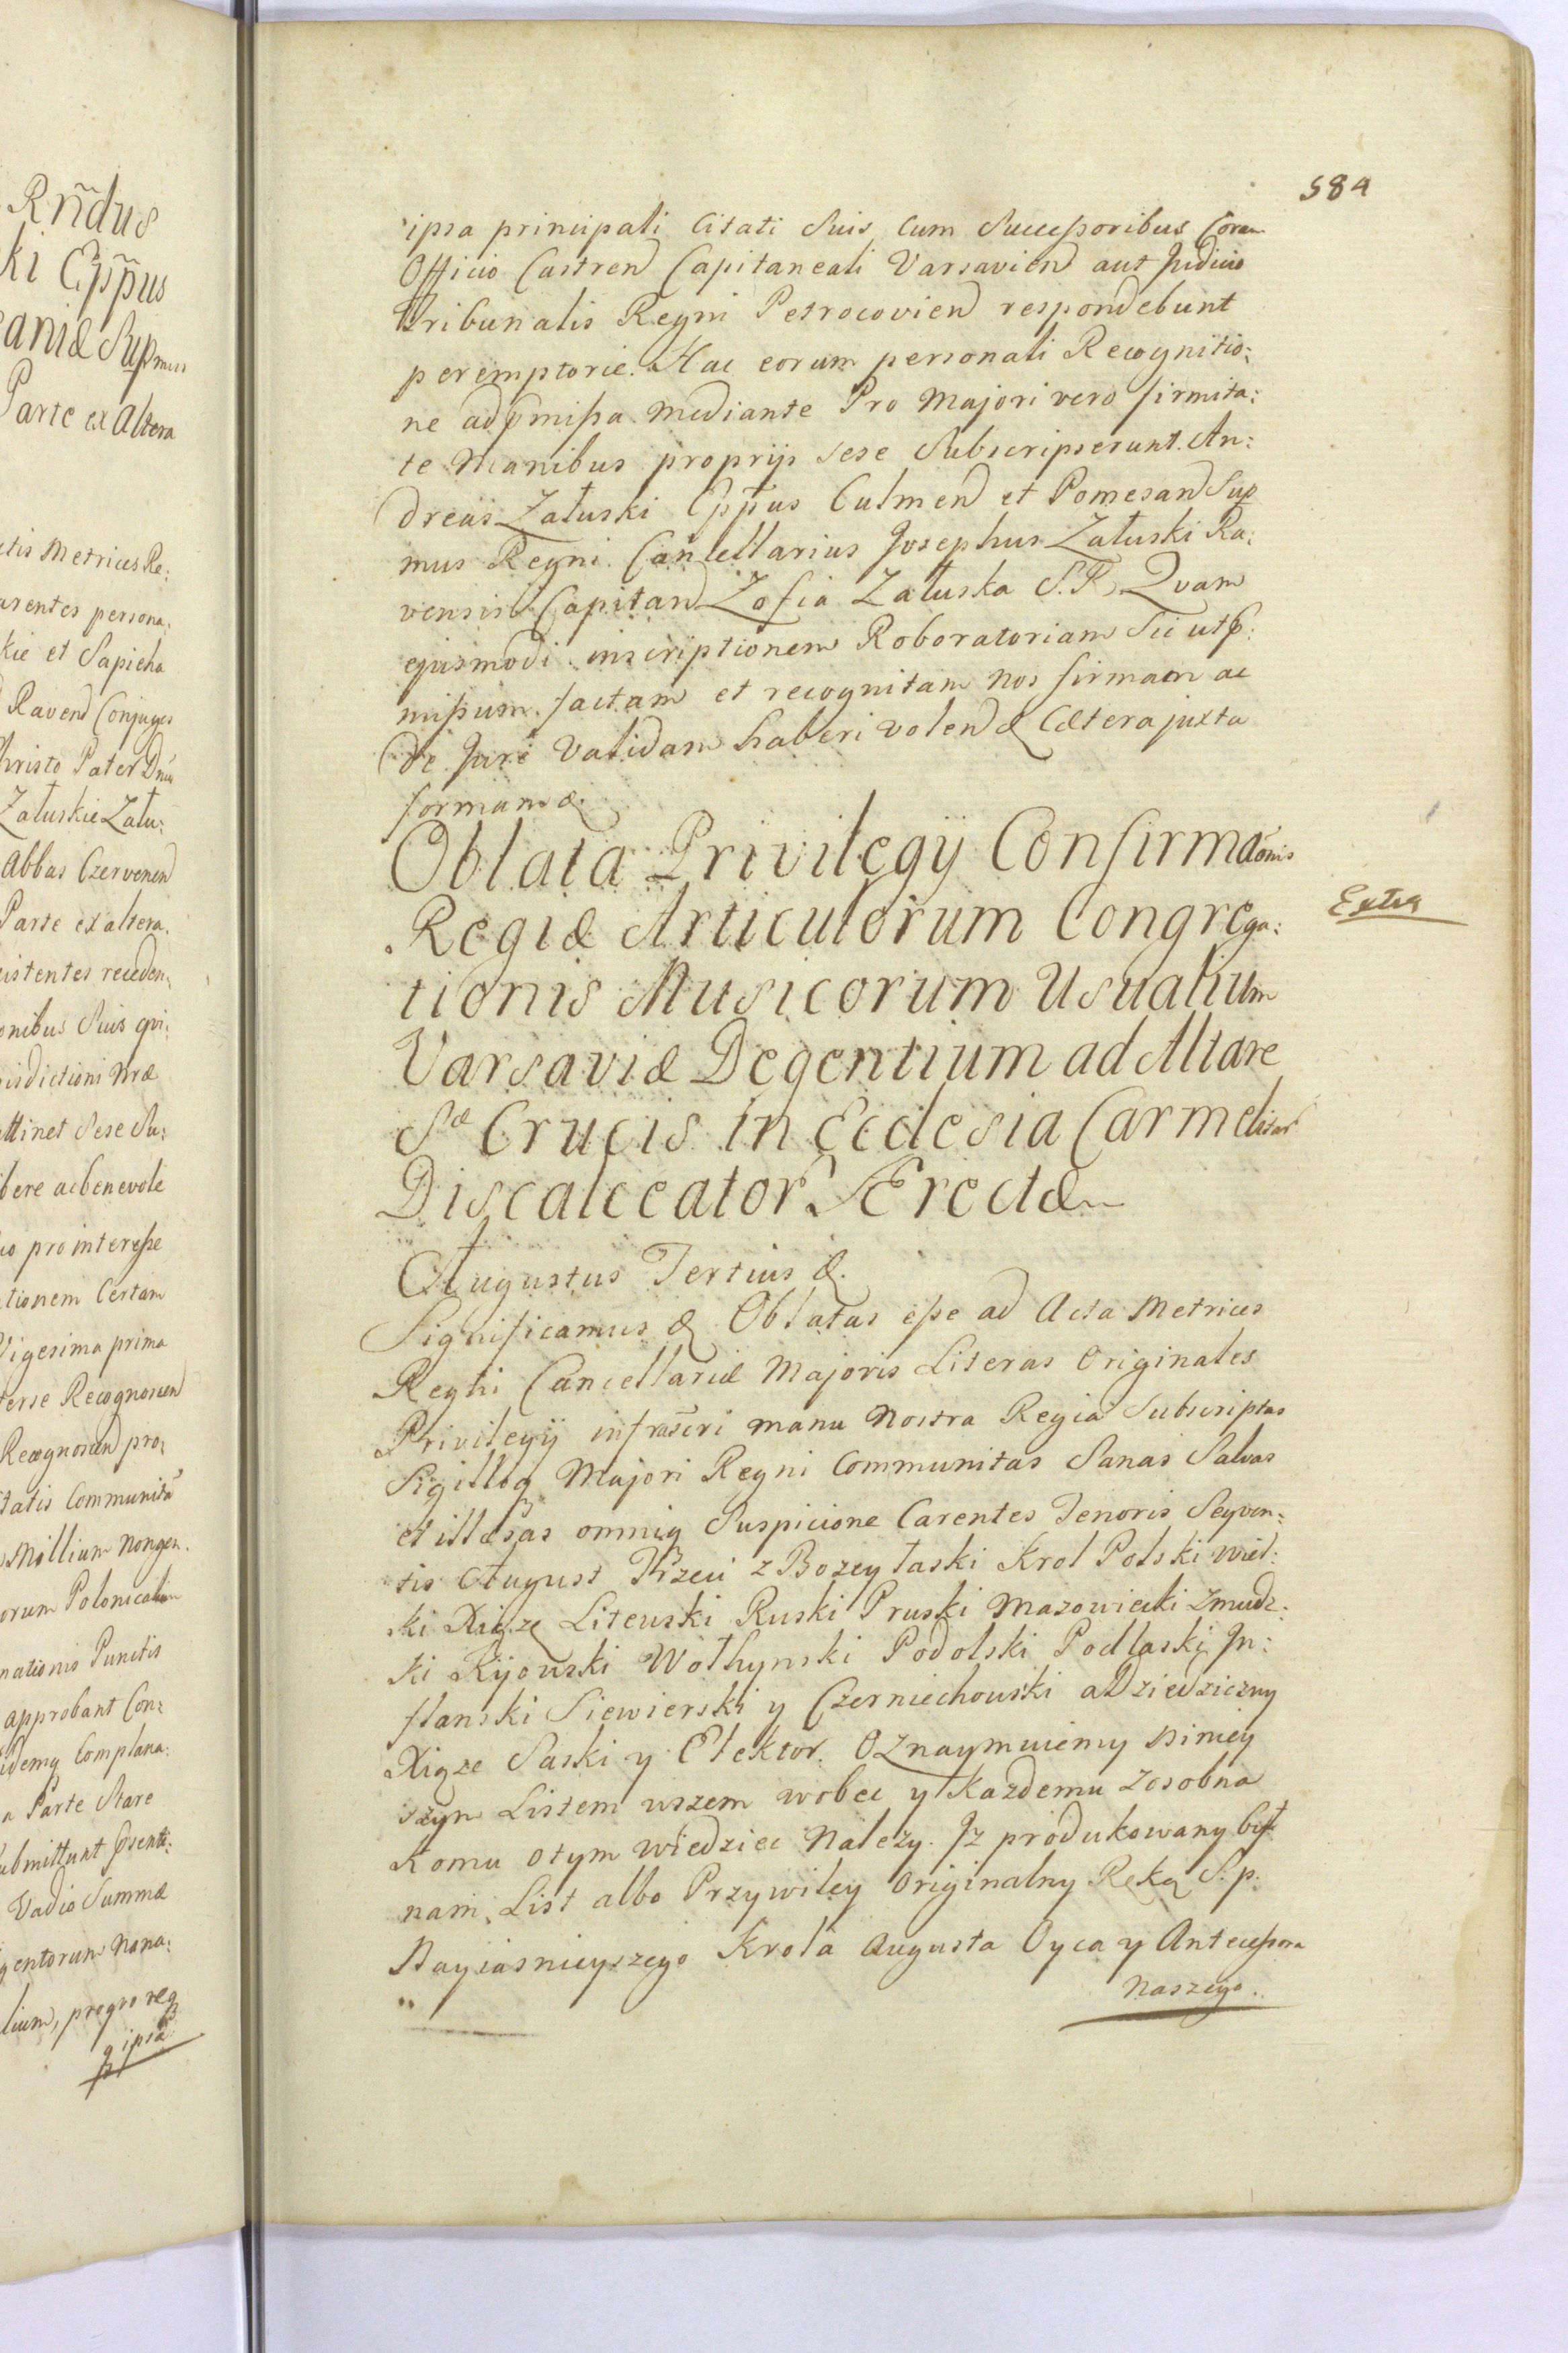 Rñdus
ki Epp̃us
aniæ Supmus
Parte ex Altera
ctis Metrices Re:
arentes persona:
kie et Sapieha
Ravend Conjuges
hristo Pater Dnus
Załuskie Zału:
Abbas Czervenen
Parte ex altera.
istentes receden:
onibus Suis qvi:
isdictioni nræ
ttinet Sese Su:
ibere ac benevole
io pro interesse
tionem Certam
Vigesima prima
terse Recognoscen
Recognoscend pro:
tatis Communitã
Millium nongen.
orum Polonicalium
nationis Punctis
approbant Con:
idemq Complana:
a Parte Stare
ubmittunt psenti:
Vadio Summæ
gentorum nona:
lium, pro qvo req
q ipsa
584
ipsa principali Citati Suis Cum Successoribus Coram
Officio Castrend Capitaneali Varsaviend aut Judicio
Tribunalis Regni Petrocoviend respondebunt
peremptorie. Hac eorum personali Recognitio:
ne ad pmissa mediante Pro Majori vero firmita:
te Manibus proprijs sese Subscripserunt. An:
dreas Załuski Epp̃us Culmend et Pomesand Sup
mus Regni Cancellarius Josephus Załuski Ra:
vensis Capitand Zofia Załuska S. R. Qvam
ejusmodi inscriptionem Roboratoriam Sic utp:
missum factam et recognitam nos firmam ac
de Jure Validam haberi volend & Cætera juxta
formam &.
Oblata Privilegij Confirmãonis
Regiæ Articulorum Congrega:
tionis Musicorum Usualium
Varsaviæ Degentium ad Altare
Sæ Crucis in Ecclesia Carmelitar
Discalceator Erectæ
Extra
Augustus Tertius &.
Significamus & Oblatas esse ad Acta Metrices
Regni Cancellariæ Majoris Literas Originales
Privilegij infrascri manu Nostra Regia Subscriptas
Sigilloq Majori Regni Communitas Sanas Salvas
et illæsas omniq Suspicione Carentes Tenoris Seqven:
tis August Trzeci z Bozey łaski Krol Polski wiel:
ki Xiąze Litewski Ruski Pruski Mazowiecki Zmudz:
ki Kijowski Wołhynski Podolski Podlaski In:
flanski Siewierski y Czerniechowski a Dziedziczny
Xiąze Saski y Elektor. Oznaymuiemy niniey
szym Listem wszem wobec y Kazdemu Zosobna
Komu otym wiedziec Nalezy. Iz produkowany był
nam List albo Przywiley Originalny Ręką S. p.
Nayiasnieyszego Krola Augusta Oyca y Antecessora
Naszego.